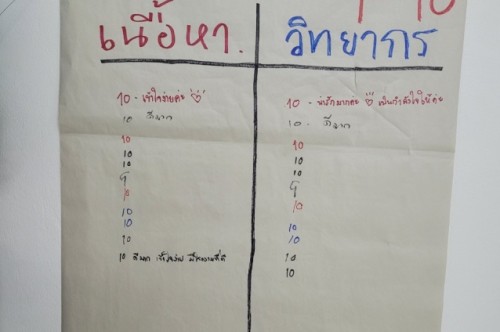 10
เนื้อหา. วิทยากร
10 - เข้าใจง่ายค่ะ
10 - น่ารักมากค่ะ เป็นกำลังใจให้ค่ะ
10 ดีมาก
10 - ดีมาก
10
10
10
10
10
10
9
9
10
10
10
10
10
10
10
10
10 ดีมาก เข้าใจง่าย
10